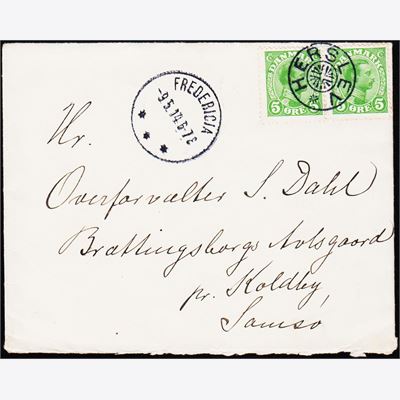 DANMARK
DANMARK
5 ØRE 5
5 ØRE 5
HERSLEV
FREDERICIA
-9.5.14.6-7E
Hr.
Overforvalter S. Dahl
Brattingsborgs Avlsgaard
pr. Koldby,
Samsø